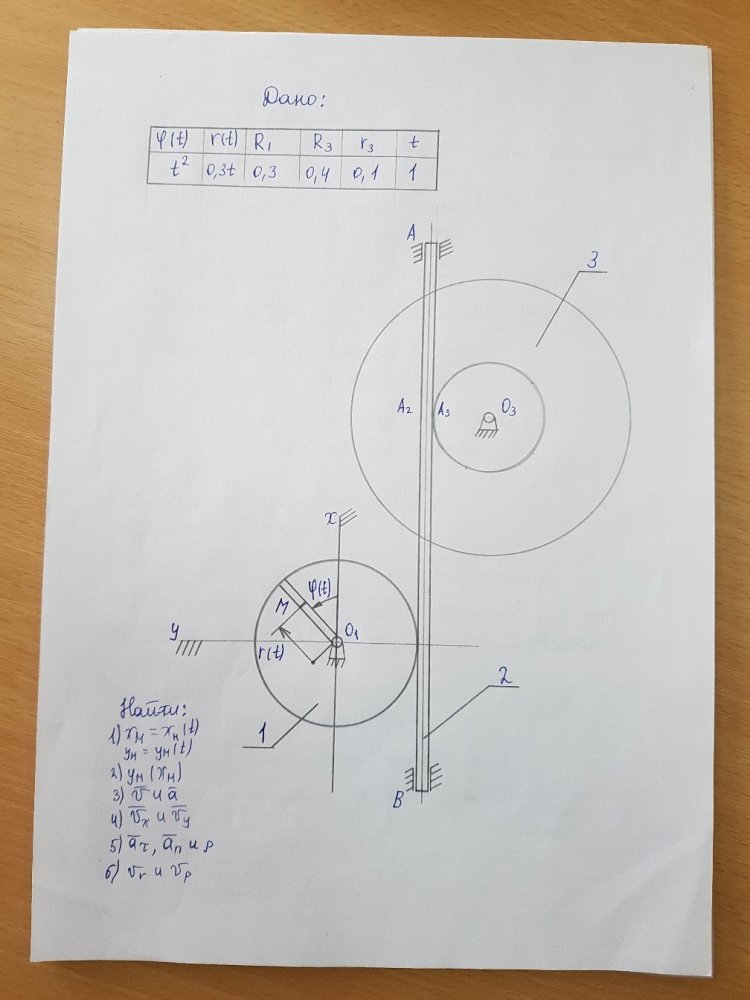 Дано:
φ(t) r(t) R₁ R₃ r₃ t
t² 0,3t 0,3 0,4 0,1 1
A
3
A₂ A₃ O₃
x
φ(t)
M
y O₁
r(t)
2
1
B
Найти:
1) xм = xм(t)
yм = yм(t)
2) yм(xм)
3) v̄ и ā
4) v̄x и v̄y
5) āτ, ān и ρ
6) v̄r и v̄p